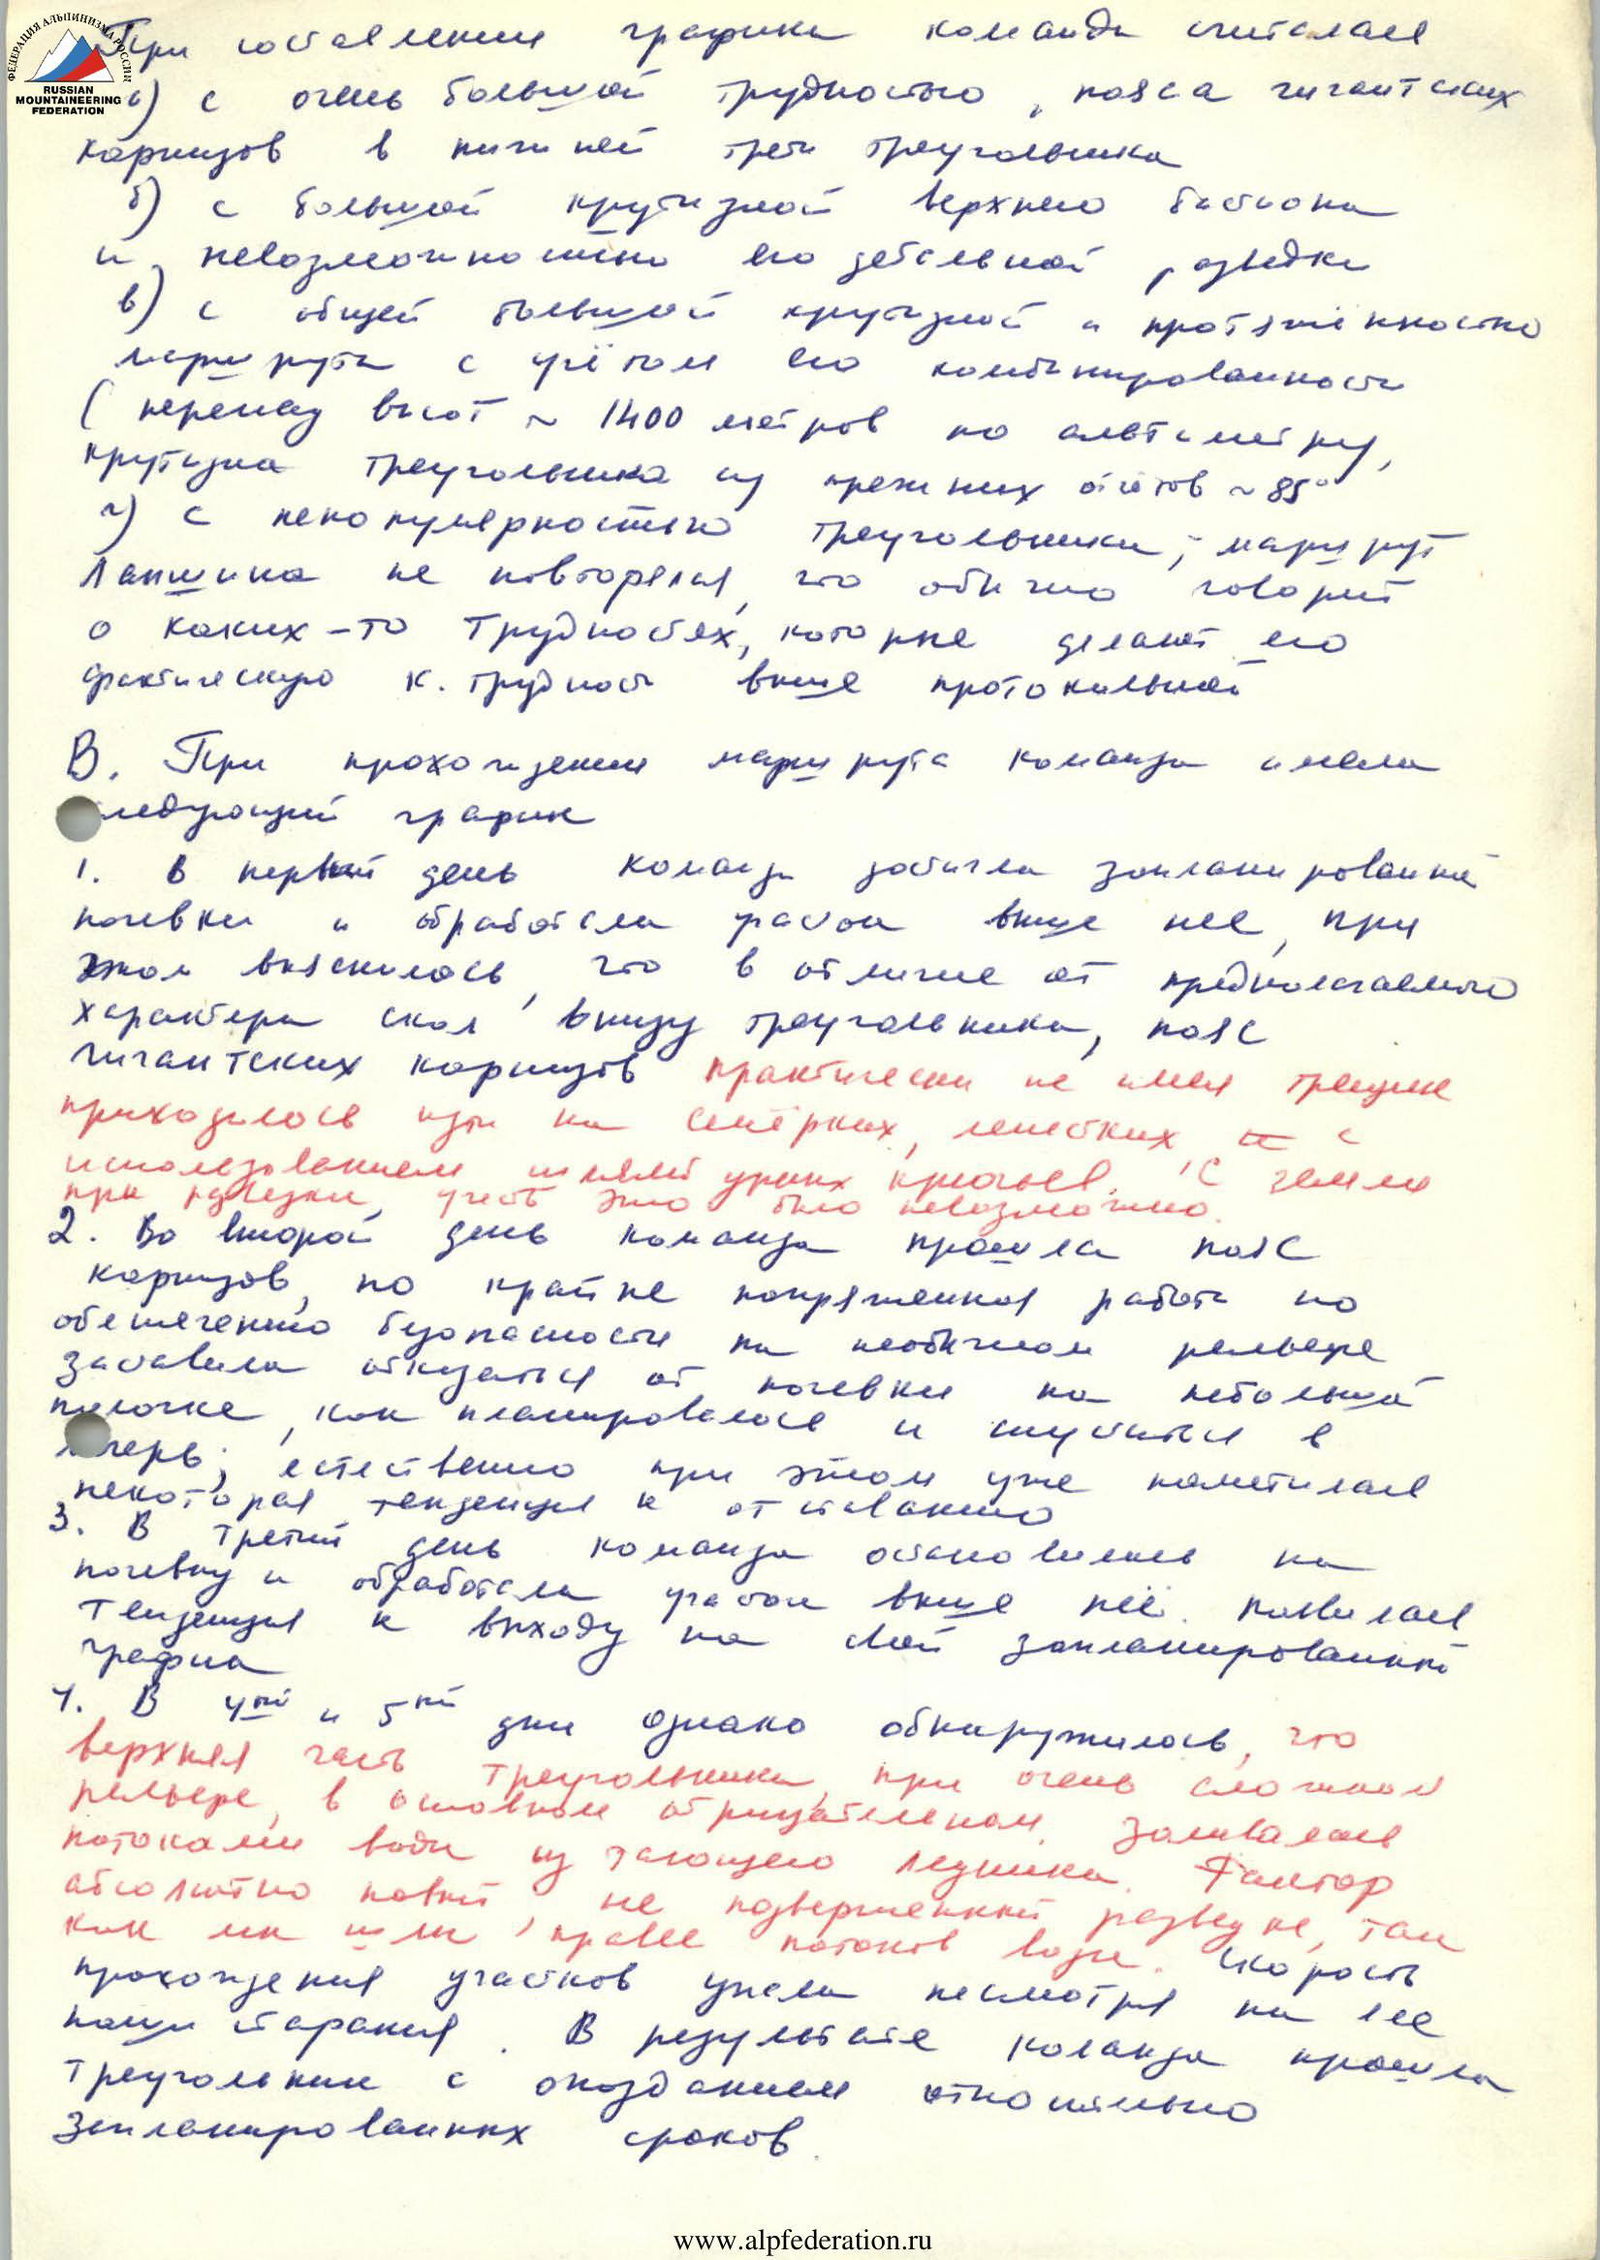 ФЕДЕРАЦИЯ АЛЬПИНИЗМА РОССИИ
RUSSIAN
MOUNTAINEERING
FEDERATION
При составлении графика команда считалась
а) с очень большой трудностью пояса гигантских
карнизов в нижней трети треугольника
б) с большой крутизной верхнего бастиона
и невозможностью его детальной разведки
в) с общей большой крутизной и протяжённостью
маршрута с учётом его комбинированности
(перепад высот ~ 1400 метров по альтиметру,
крутизна треугольника из прежних отчётов ~ 85°
г) с непопулярностью треугольника; маршрут
Лапшина не повторялся, что обычно говорит
о каких-то трудностях, которые делают его
фактическую к. трудности выше протокольной
В. При прохождении маршрута команда имела
следующий график
1. В первый день команда достигла запланированной
ночевки и обработала участок выше неё, при
этом выяснилось, что в отличие от предполагаемого
характера скал внизу треугольника, пояс
гигантских карнизов практически не имел трещин
приходилось идти на скайхуках, лепестках, с
использованием шлямбурных крючьев. С земли
при разведке, учесть это было невозможно.
2. Во второй день команда прошла пояс
карнизов, но крайне напряженная работа по
обеспечению безопасности на необычном рельефе
заставила отказаться от ночевки на небольшой
полочке, как планировалось и спуститься в
лагерь; естественно при этом уже наметилась
некоторая тенденция к отставанию
3. В третий день команда остановилась на
ночевку и обработала участок выше неё. Появилась
тенденция к выходу на свой запланированный
график
4. В 4ый и 5ый дни однако обнаружилось, что
верхняя часть треугольника, при очень сложном
рельефе, в основном отрицательном, заливалась
потоками воды из тающего ледника. Фактор
абсолютно новый не подверженный разведке, так
как мы шли правее потоков воды. Скорость
прохождения участков упала несмотря на все
наши старания. В результате команда прошла
треугольник с опозданием относительно
запланированных сроков.
www.alpfederation.ru